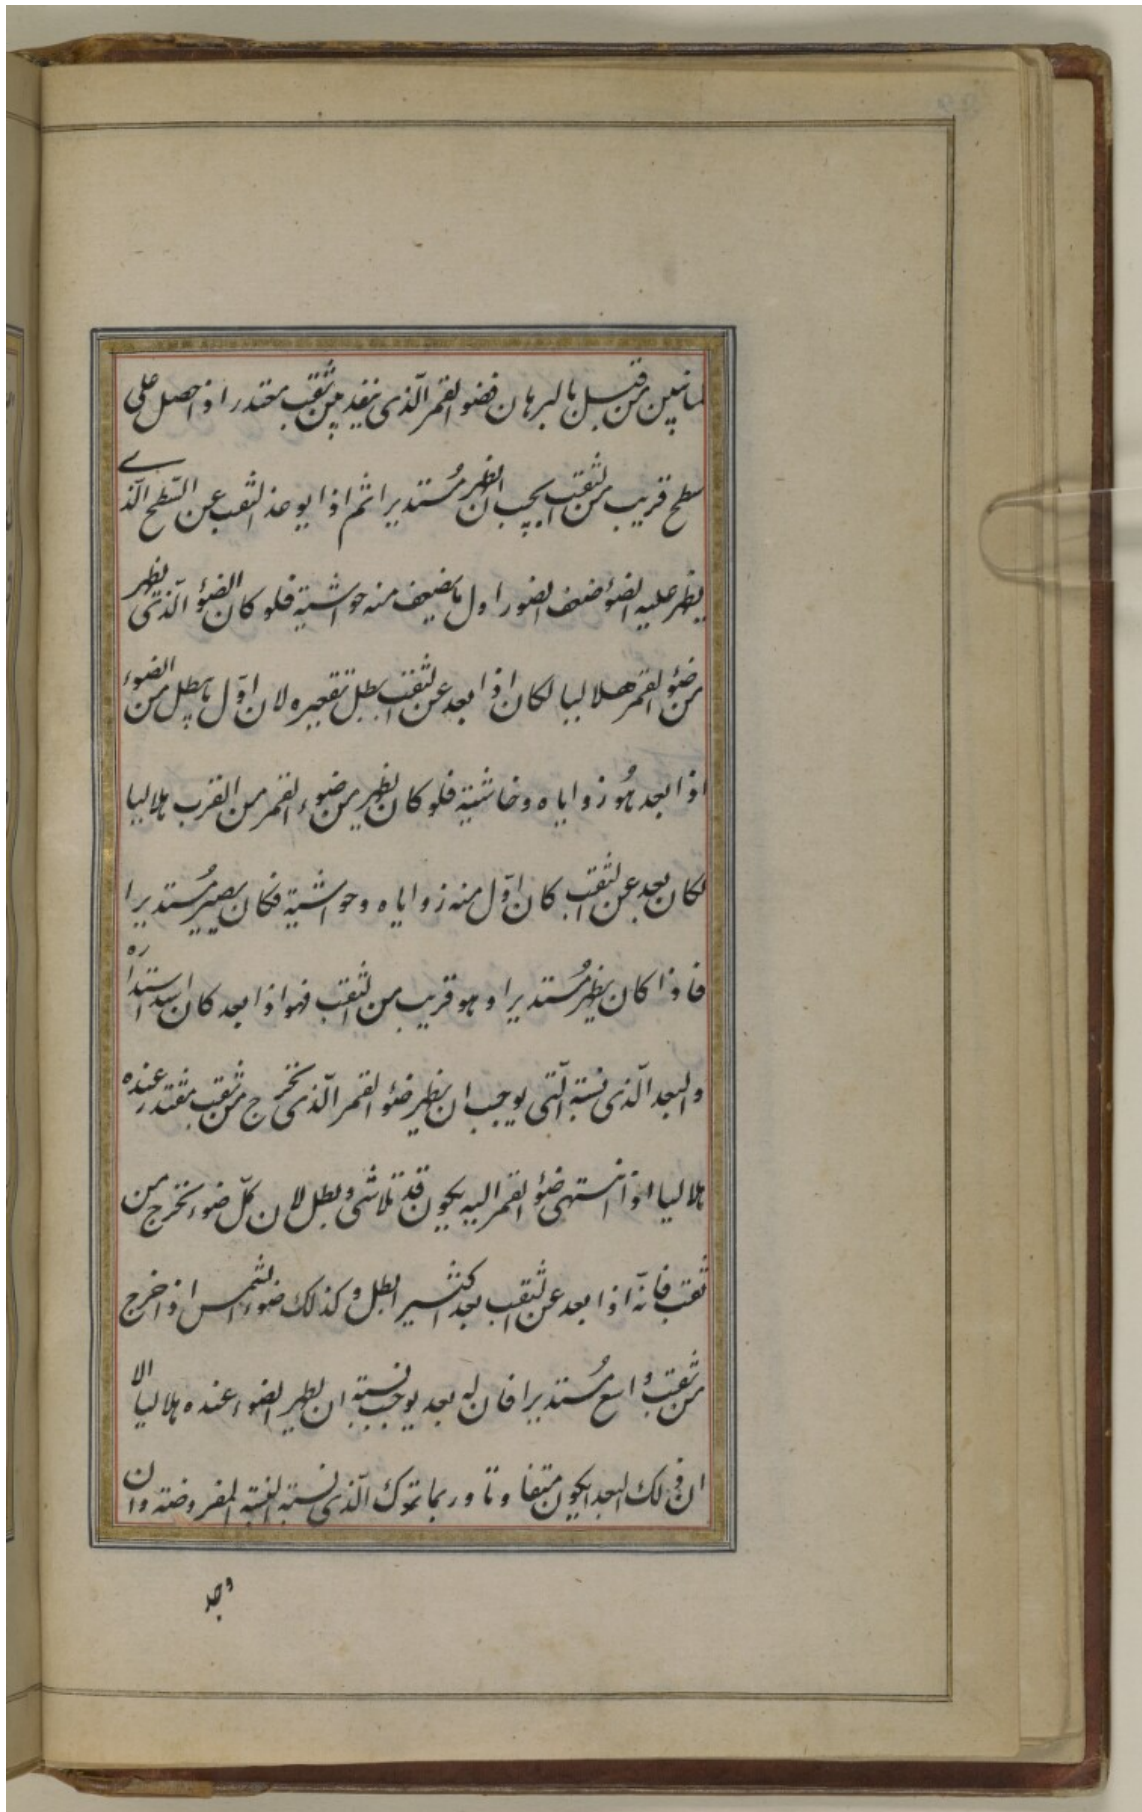 لما تبين من قبل بالبرهان فضو القمر الذى ينفد من ثقب مقتدر اذا حصل على
سطح قريب من الثقب يجب ان يظهر مُستديرا ثم اذا بوعد الثقب عن السّطح الّذے
يظهر عليه الضوٴ ضعف الضو واول ما يضعف منه حواشية فلو كان الضوٴ الّذى يظهر
من ضوٴ القمر هلاليا لكان اذا بعد عن الثقب يبطل تقعيره لان اوّل ما يبطل من الضوء
اذا بعد هُو زواياه وحاشية فلو كان يظهر من ضوء القمر من القرب هلاليا
لكان بعد عن الثقب كان اوّل منه زواياه وحواشية فكان يصير مُستديرا
فاذا كان يظهر مُستديرا وهو قريب من الثقب فهو اذا بعد كان اشد استداره
والبعد الّذى نسبة الّتى يوجب ان يظهر ضوٴ القمر الّذى يخرج من ثقب مقتدر عنده
هلاليا اذا انتهى ضوٴ القمر اليه يكون قد تلاشى وبطل لان كلّ ضوء يخرج من
ثقب فانّه اذا بعد عن الثقب بعد اكثير ابطل وكذلك ضوء الشمس اذا خرج
من ثقب واسع مُستديرا فان له بعد يوجب نسبة ان يظهر الضوء عنده هلاليا الا
ان ذلك البعد يكون متفاوتا وربما الّذى نسبة النسبة المفروضة وان
وجد